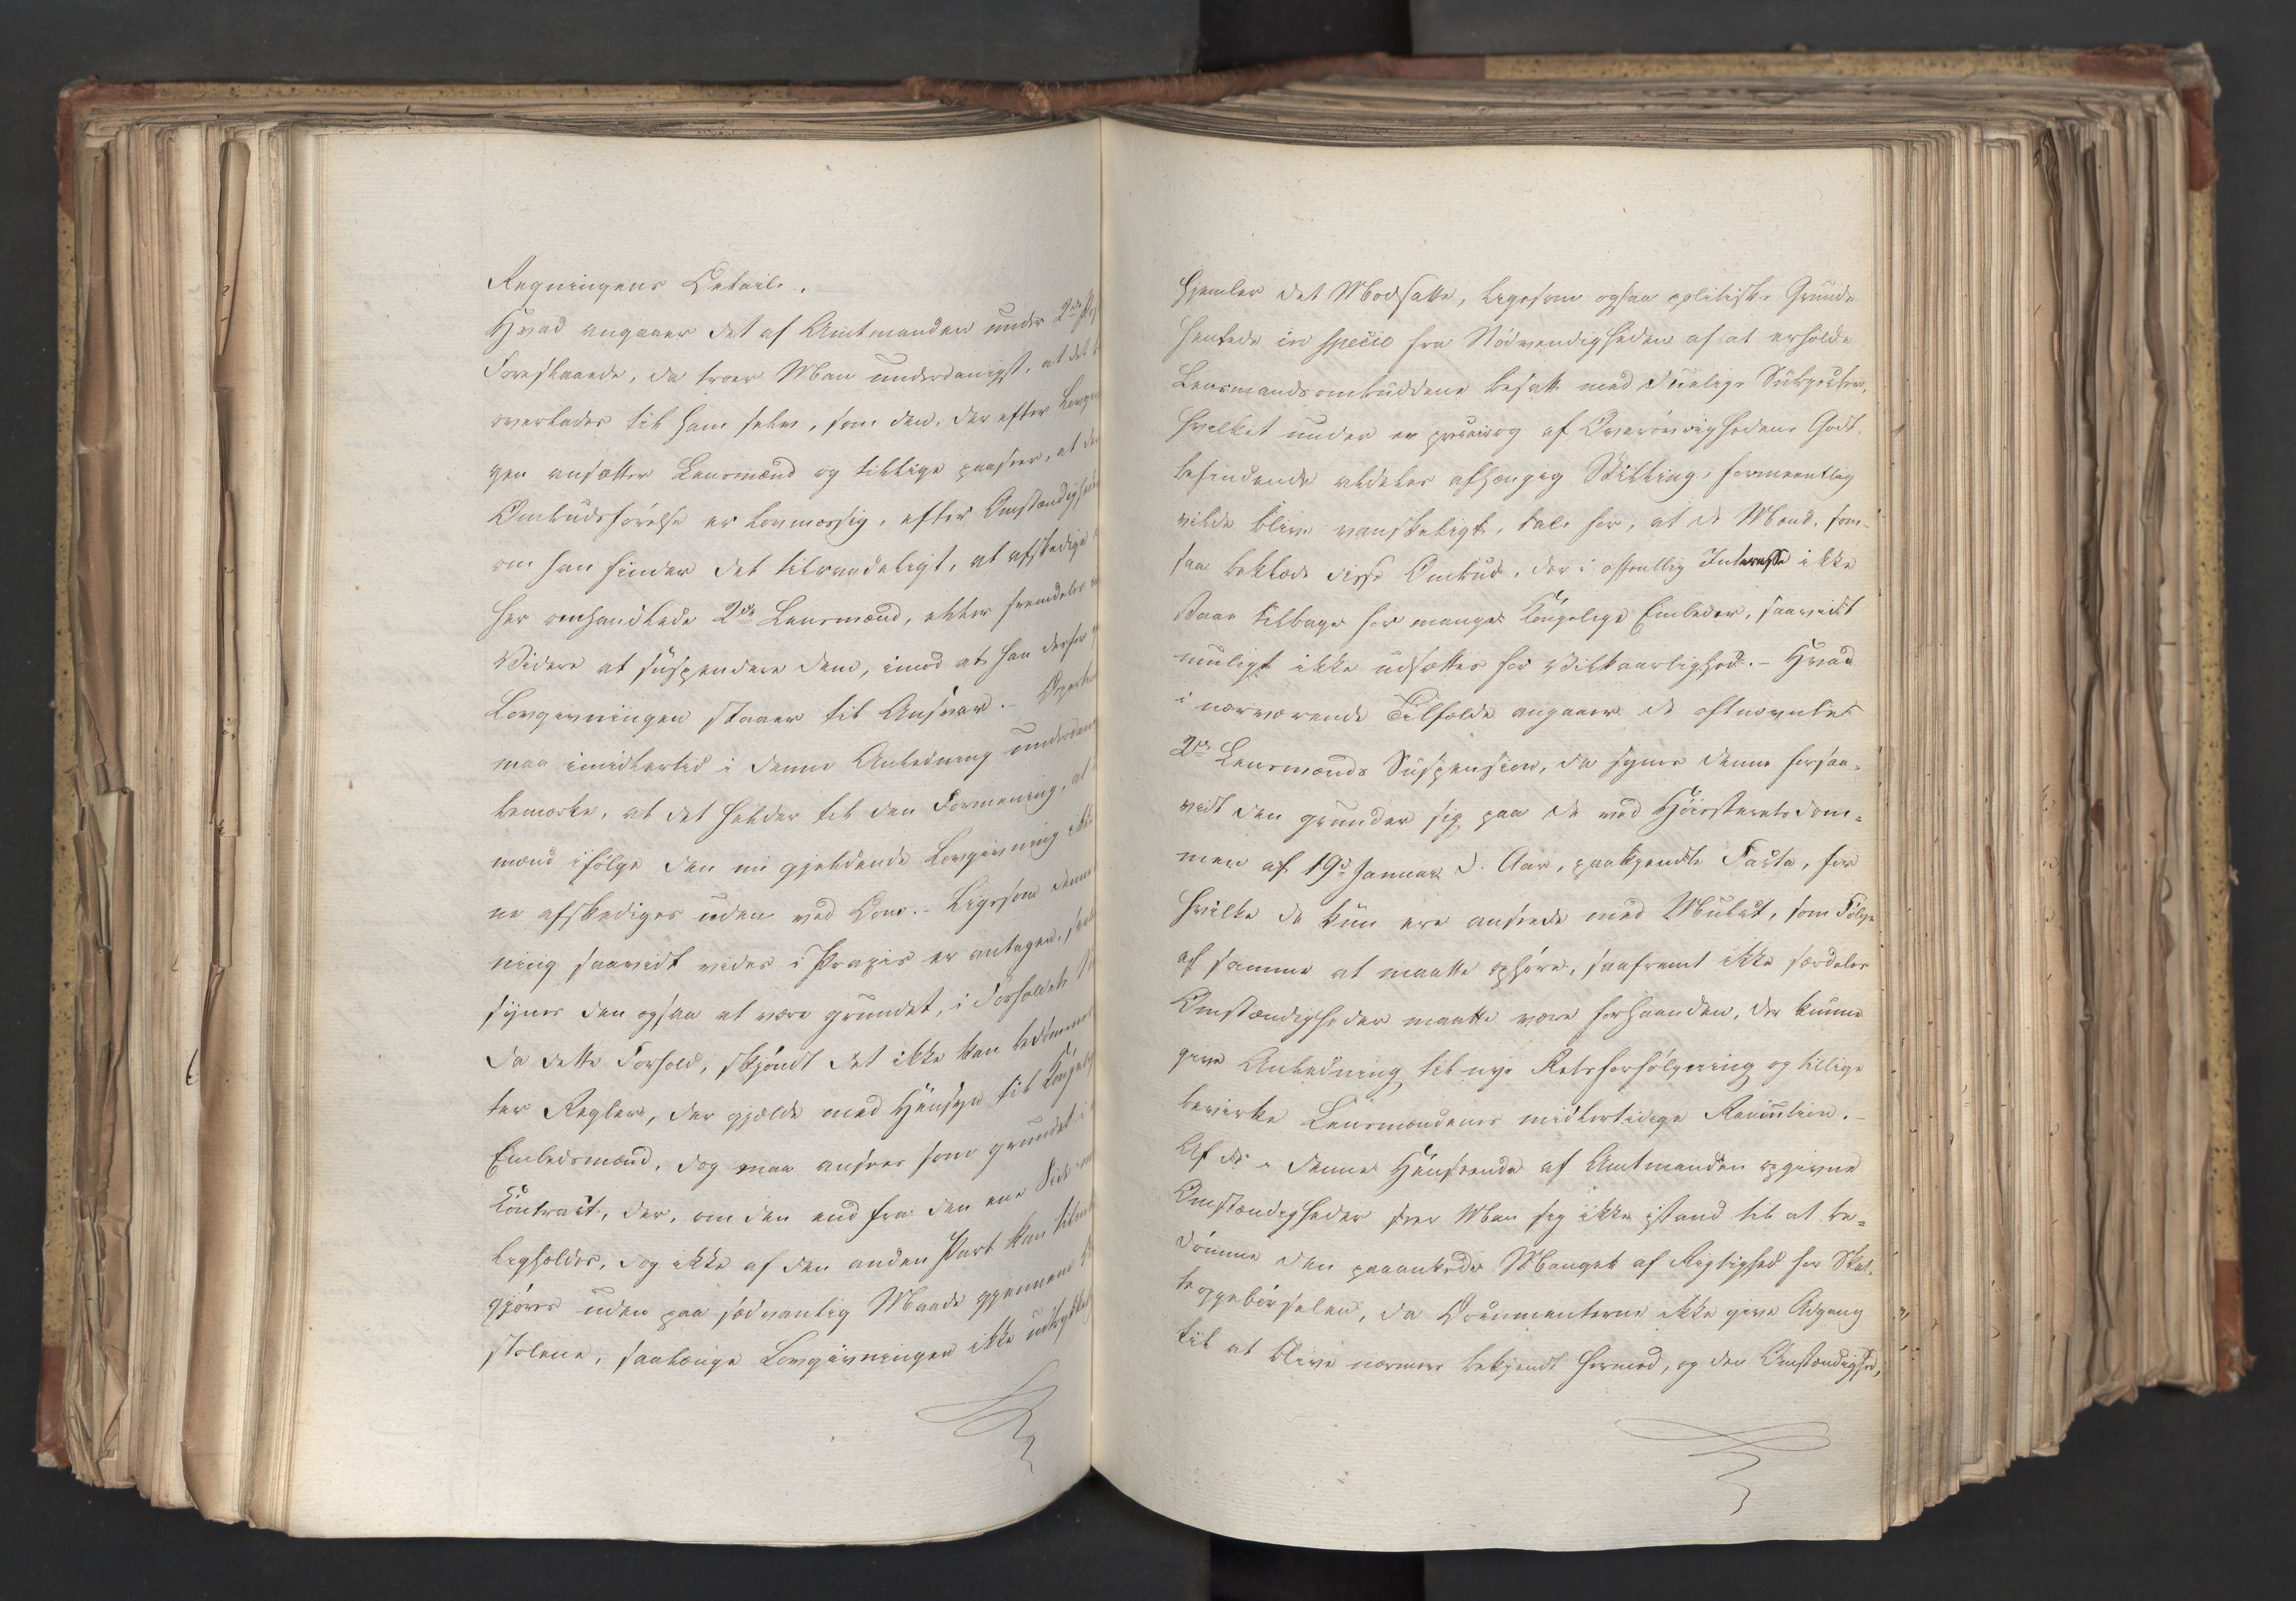 Regningens Detail.
Hvad angaaer det af Amtmanden under 2de
Foreslaaede, da troer Man underdanigst, at det
overlades til ham selv, som den, der efter Lovgiv
gen ansætter Lensmænd og tillige paaseer, at de
Ombudsførelse er lovmæssig, efter Omstændighede
om han finder det tilraadeligt, at afskedige
her omhandlede 2de Lensmænd, eller fremdeles
Videre at suspendere dem, imod at han derfor
Lovgivningen staaer til Ansvar.
maa imidlertid i denne Anledning underdan
bemærke, at det helder til den Formening, at
mænd ifølge den nu gjeldende Lovgivning ikke
ne afskediges uden ved Dom. Ligesom denne
ning saavidt vides i Praxis er antagen,
synes den ogsaa at være grundet, i Forholdets
da dette Forhold, skjøndt det ikke kan bedømmes
ter Regler, der gjelde med Hensyn til Kongelig
Embedsmænd, dog maa ansees som grundet i
Contract, der, om den end fra den ene Side
ligholdes, dog ikke af den anden Part kan
gjøres uden paa sædvanlig Maade gjennem
stolene, saalænge Lovgivningen ikke udtrykkel
hjemler det Modsatte, ligesom ogsaa politiske Grunde
hentede in specie fra Nødvendigheden af at erholde
Lensmandsombuddene besatt med duelige Subjecter,
hvilket under en precair og af Overøvrighedens Godt-
befindende aldeles afhængig Stilling, formeentlig
vilde blive vanskeligt, tale for, at de Mænd, som
saa beklæde disse Ombud, der i offentlig Interesse ikke
staae tilbage for mange Kongelige Embeder, saavidt
muligt ikke udsættes for Vilkaarlighed. - Hvad
i nærværende Tilfælde angaaer de oftnævnte
2de Lensmænds Suspension, da synes denne forsaa-
vidt den grunder sig paa de ved Høiesteretsdom-
men af 19de Januar d. Aar, paakjendte Facta, for
hvilke de kun ere ansete med Mulct, som Følge
af samme at maatte ophøre, saafremt ikke særdeles
Omstændigheder maatte være forhaanden, der kunne
give Anledning til nye Retsforfølgning og tillige
bevirke Lensmændenes midlertidige Remotion. -
Af de i denne Henseende af Amtmanden opgivne
Omstændigheder seer Man sig ikke istand til at be-
dømme den paaankede Mangel af Rigtighed for Skat-
teoppebørselen, da Documenterne ikke give Adgang
til at blive nærmere bekjendt hermed, og den Omstændighed,